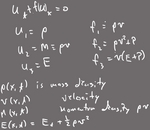 u_t + f(u)_x = 0
u_1 = ρ
f_1 = ρv
u_2 = m = ρv
f_2 = ρv² + P
u_3 = E
f_3 = v(E+P)
ρ(x,t) is mass density
v(x,t) velocity
m(x,t) momentum density ρv
E(x,t) = E_d + ½ρv²